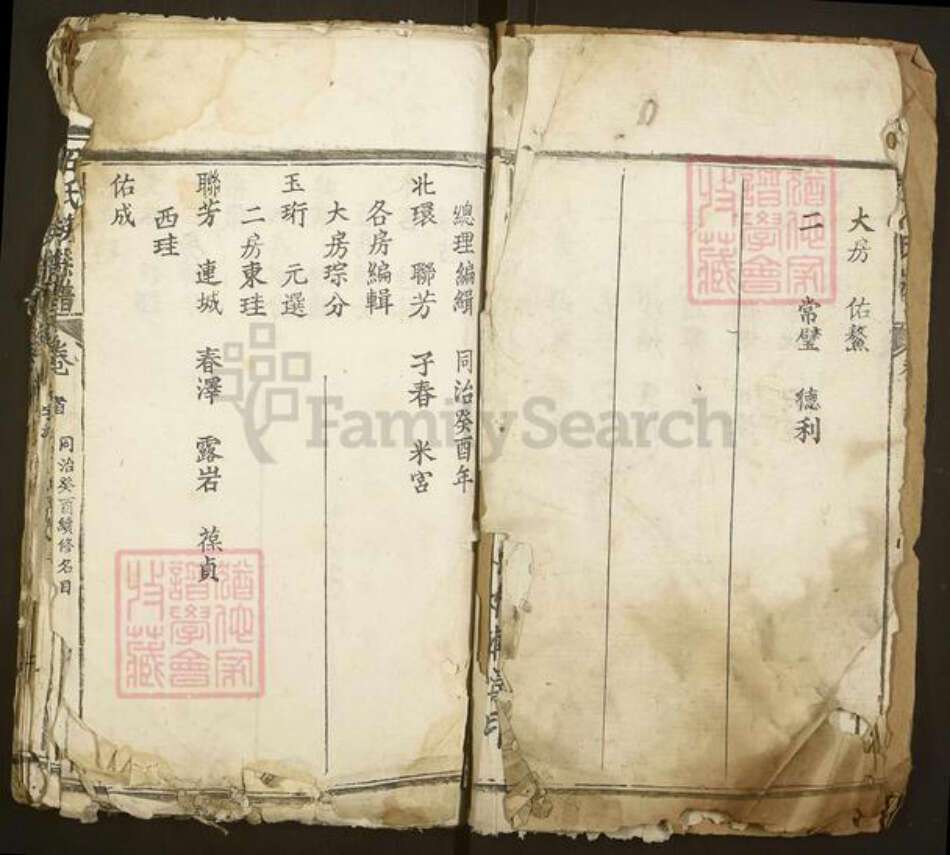 大房 佑鰲
二 常璧 德利
總理編緝 同治癸酉年
北環 聯芳 子春 米宮
各房編輯
大房琮分
玉珩 元選
二房東珪
聯芳 連城 春澤 露岩 葆貞
西珪
佑成
氏 譜 卷首 同治癸酉續修名目
猶他家譜學會收藏
猶他家譜學會收藏
FamilySearch